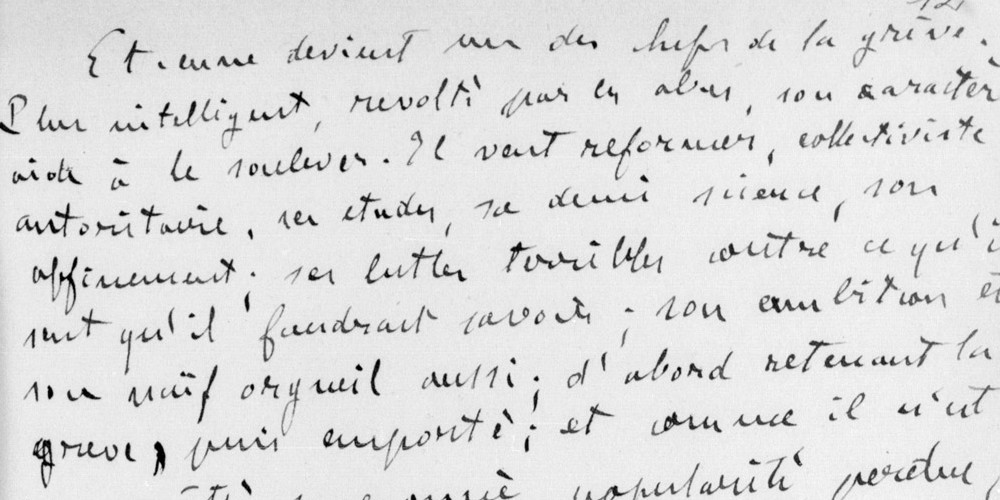 Etienne devient un des chefs de la grève.
Plus intelligent, revolté par les abus, son caractèr
aide à le soulever. Il veut reformer, collectiviste
autoritaire, ses etudes, sa demi science, son
affinement; ses luttes terribles contre ce qu'i
sent qu'il faudrait savoir; son ambition et
son naïf orgueil aussi; d'abord retenant la
greve, puis emporté; et comme il n'est
popularité perdue